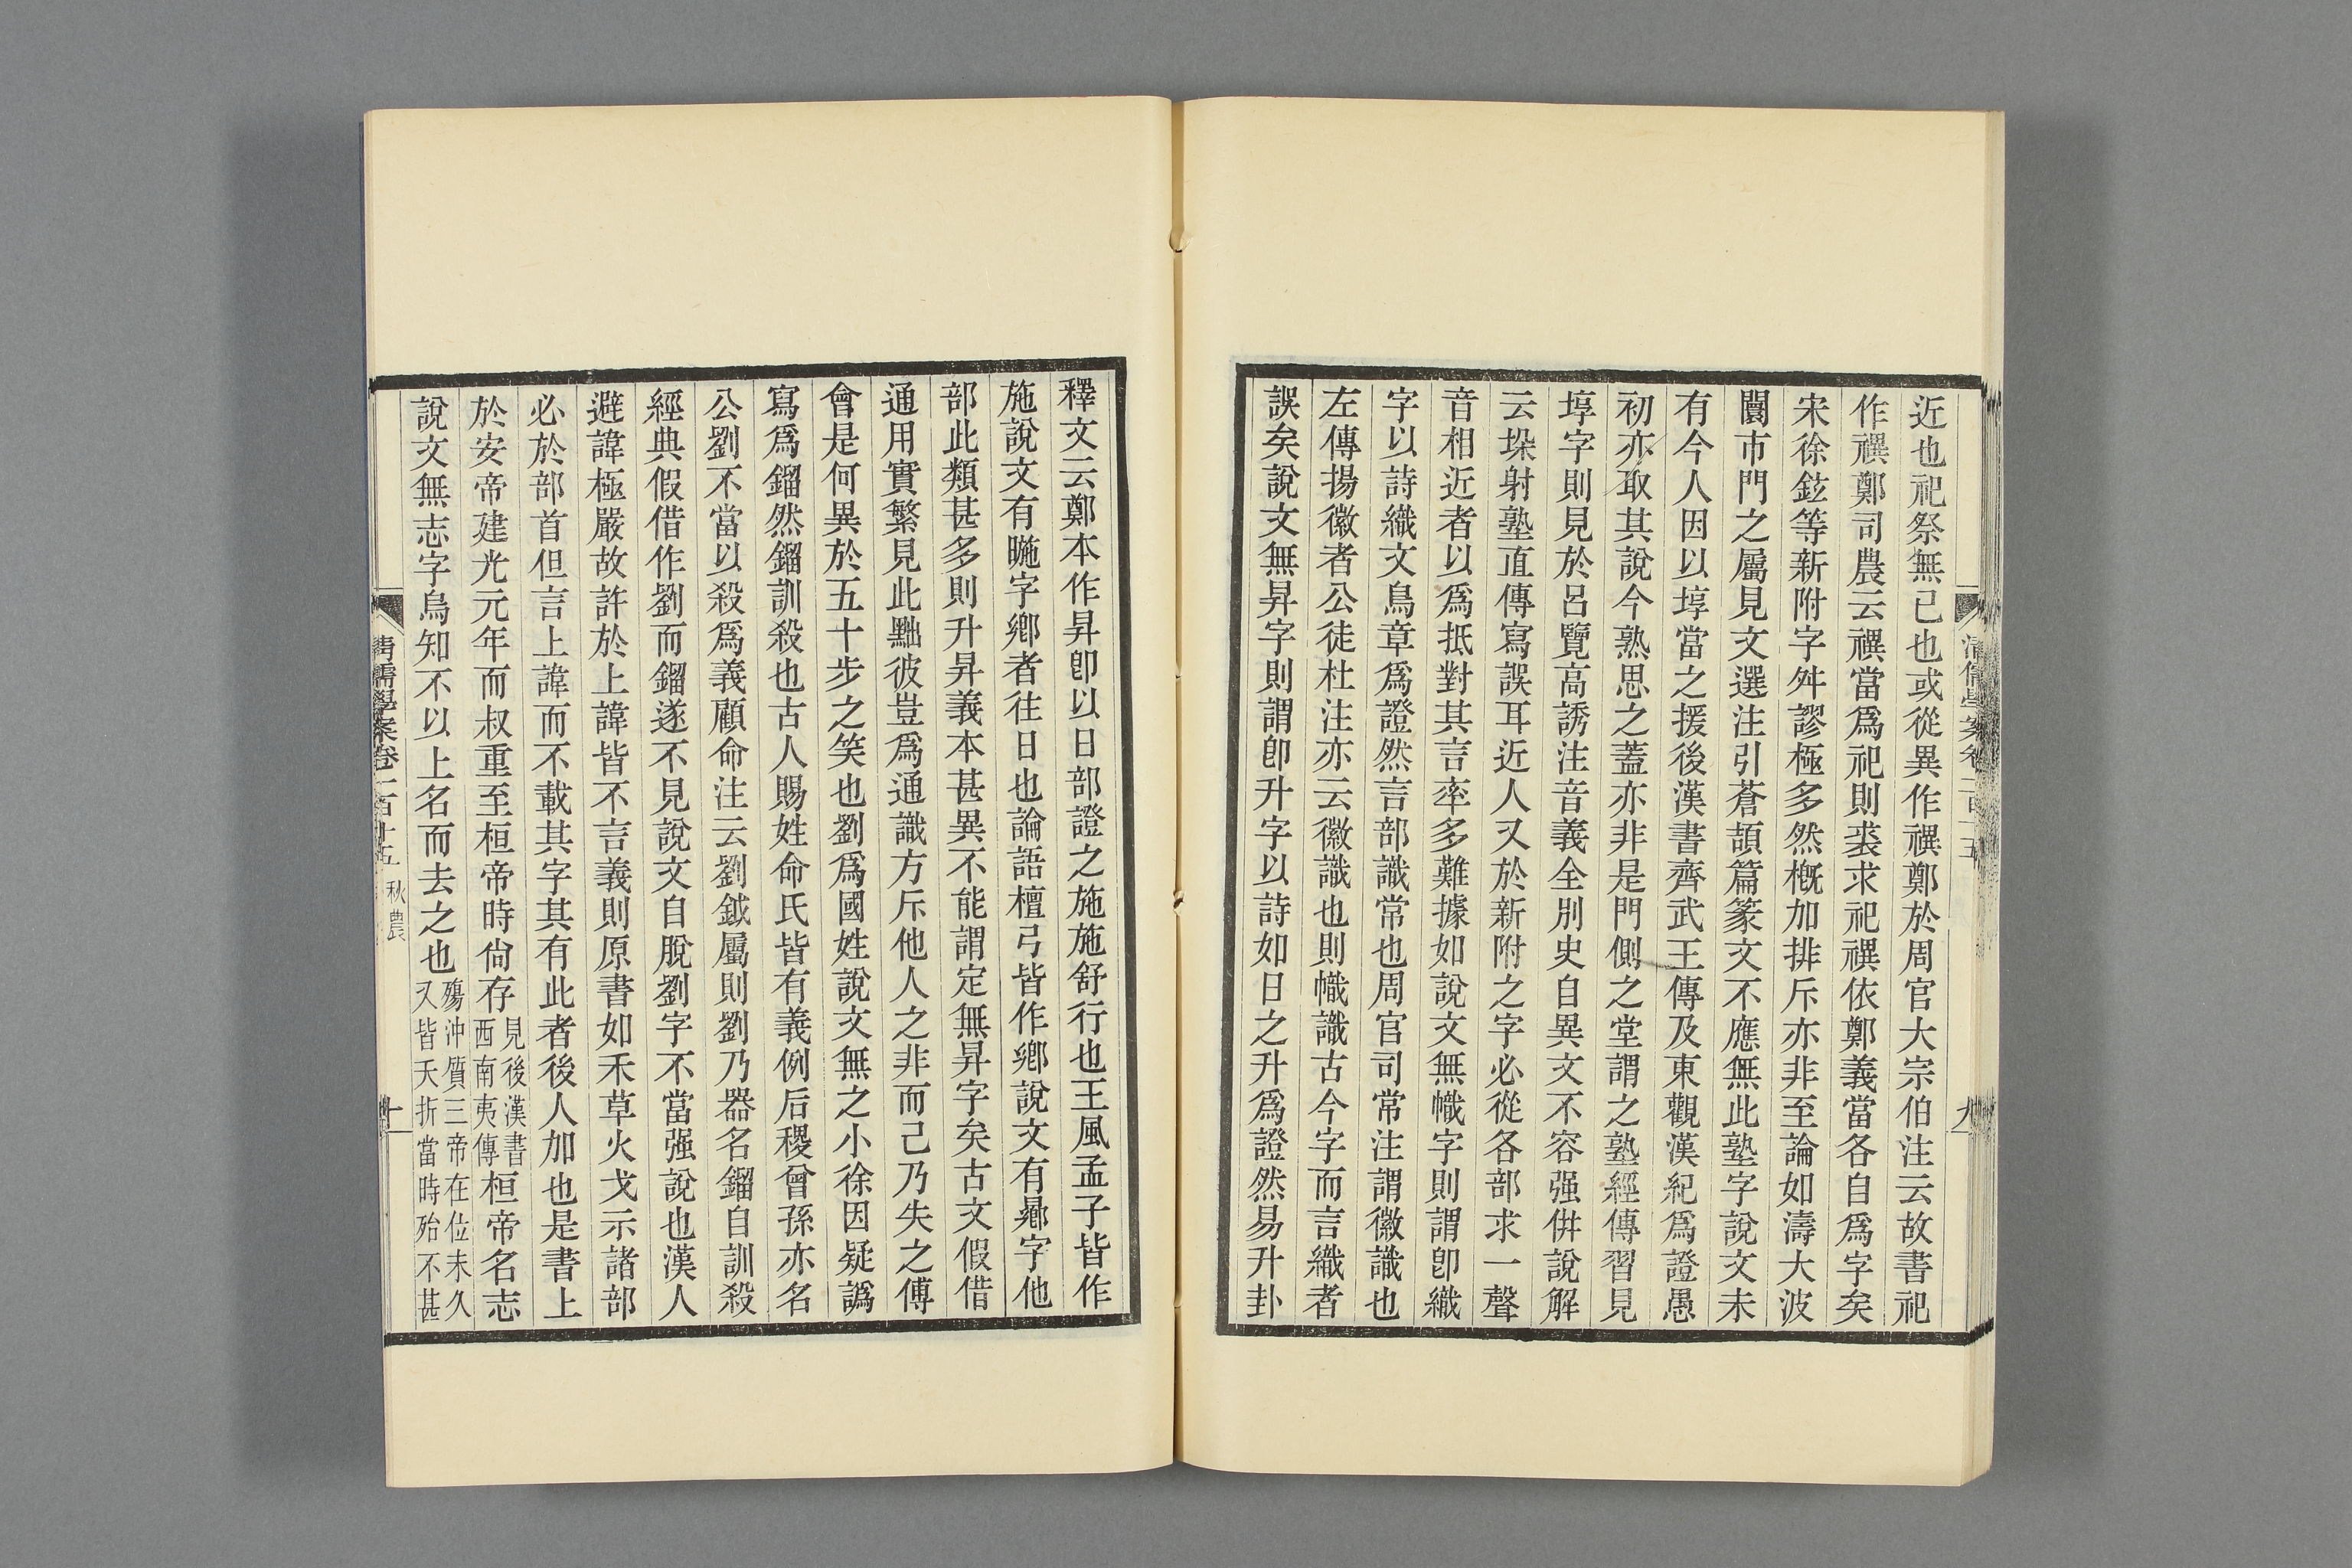 近也祀祭無已也或從異作禩鄭於周官大宗伯注云故書祀
作禩鄭司農云禩當爲祀則裘求祀禩依鄭義當各自爲字矣
宋徐鉉等新附字舛謬極多然槪加排斥亦非至論如濤大波
闤市門之屬見文選注引蒼頡篇篆文不應無此塾字說文未
有今人因以埻當之援後漢書齊武王傳及東觀漢紀爲證愚
初亦取其說今熟思之蓋亦非是門側之堂謂之塾經傳習見
埻字則見於呂覽高誘注音義全別史自異文不容强倂說解
云垛射塾直傳寫誤耳近人又於新附之字必從各部求一聲
音相近者以爲抵對其言率多難據如說文無幟字則謂卽織
字以詩織文鳥章爲證然言部識常也周官司常注謂徽識也
左傳揚徽者公徒杜注亦云徽識也則幟識古今字而言織者
誤矣說文無昇字則謂卽升字以詩如日之升爲證然易升卦
釋文云鄭本作昇卽以日部證之施施舒行也王風孟子皆作
施說文有暆字鄕者往日也論語檀弓皆作鄕說文有曏字他
部此類甚多則升昇義本甚異不能謂定無昇字矣古文假借
通用實繁見此黜彼豈爲通識方斥他人之非而己乃失之傅
會是何異於五十步之笑也劉爲國姓說文無之小徐因疑譌
寫爲鎦然鎦訓殺也古人賜姓命氏皆有義例后稷曾孫亦名
公劉不當以殺爲義顧命注云劉鉞屬則劉乃器名鎦自訓殺
經典假借作劉而鎦遂不見說文自脫劉字不當强說也漢人
避諱極嚴故許於上諱皆不言義則原書如禾草火戈示諸部
必於部首但言上諱而不載其字其有此者後人加也是書上
於安帝建光元年而叔重至桓帝時尙存見後漢書西南夷傳桓帝名志
說文無志字烏知不以上名而去之也殤沖質三帝在位未久又皆夭折當時殆不甚
清儒學案卷一百十五 秋農
十